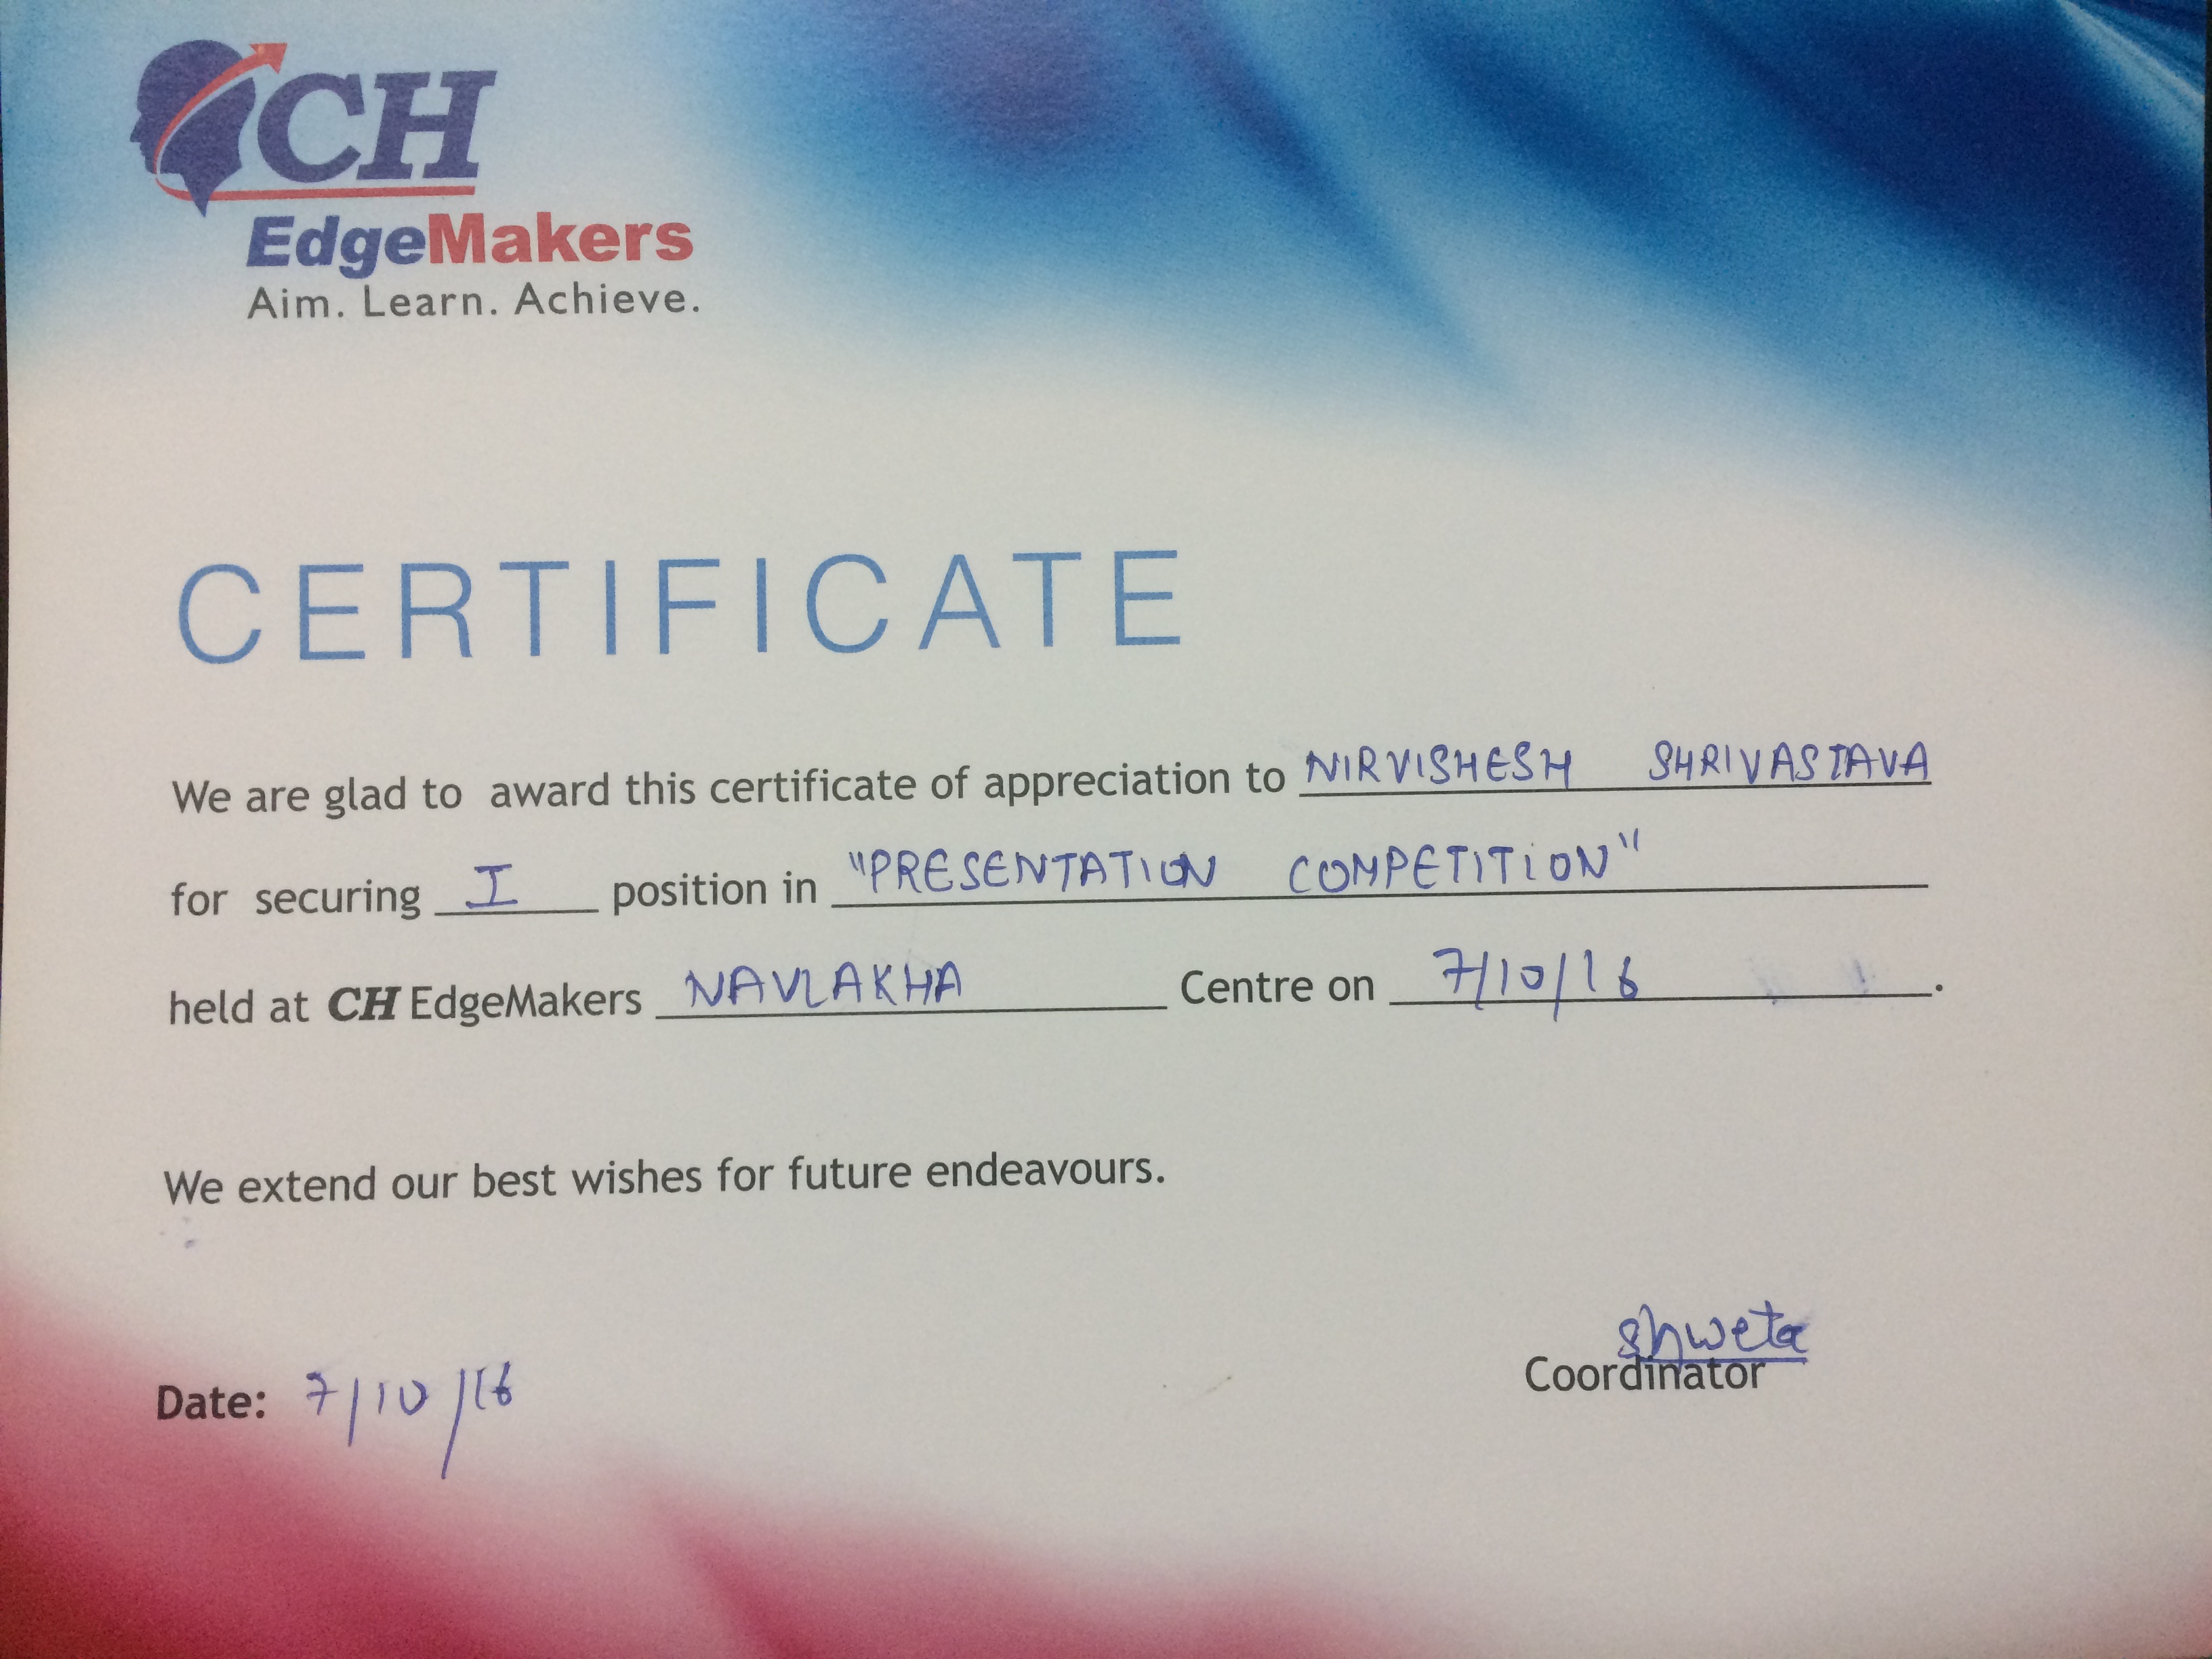 CH
EdgeMakers
Aim. Learn. Achieve.
CERTIFICATE
We are glad to award this certificate of appreciation to NIRVISHESH SHRIVASTAVA
for securing I position in "PRESENTATION COMPETITION"
held at CH EdgeMakers NAVLAKHA Centre on 7/10/16.
We extend our best wishes for future endeavours.
shweta
Coordinator
Date: 7/10/16